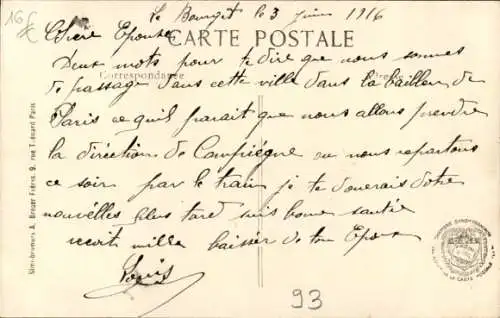 16f
Le Bourget le 3 juin 1916
Chère Epouse
CARTE POSTALE
Deux mots pour te dire que nous sommes
Correspondance
de passage dans cette ville dans la bailleu de
Paris ce quil parait que nous allons prendre
la dirèction de Campiégne ou nous repartons
ce soir par le train je te donerais dotre
nouvélles plus tard suis bone santée
recoit mille baisser de ton Epoux
Louis
93
Simi-bromure A. Breger Frères, 9, rue Thénard Paris